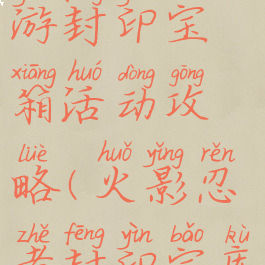 游封印宝
xiāng huó dòng gōng
箱活动攻
lüè huǒ yǐng rěn
略(火影忍
zhě fēng yìn bǎo kù
者封印宝库